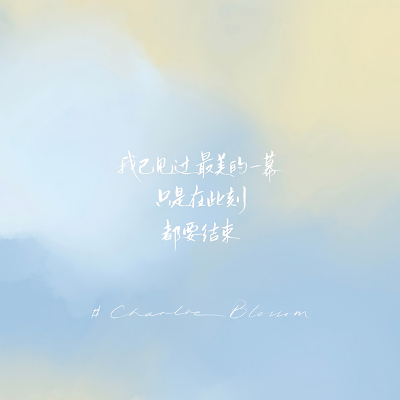 我已见过最美的一幕
只是在此刻
都要结束
# Charlie Blossom